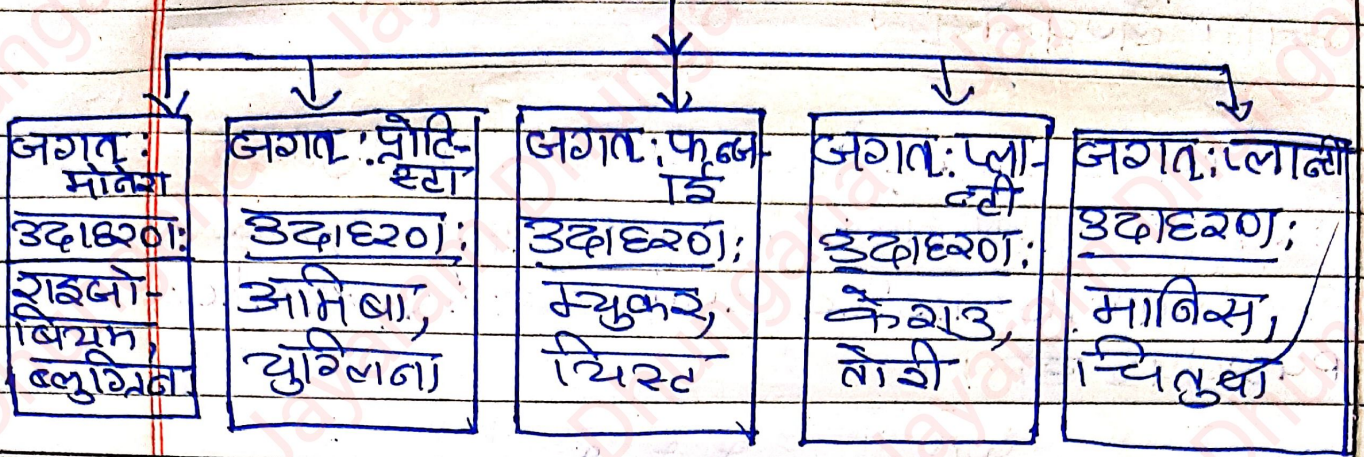 जगत :
मोनेरा
उदाहरण:
राइजो-
बियम,
ब्लुग्रिन
जगत : प्रोटि-
स्टा
उदाहरण:
अमिबा,
युग्लिना
जगत : फन्ज-
ाई
उदाहरण:
म्युकर,
यिस्ट
जगत : प्ला-
न्टी
उदाहरण:
केराउ,
तोरी
जगत : प्लान्टी
उदाहरण:
मानिस,
चितुवा